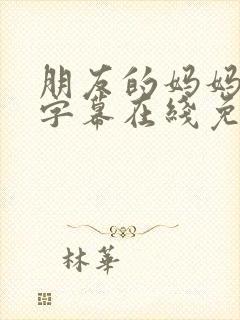 朋友的妈妈
字幕在线免
林華